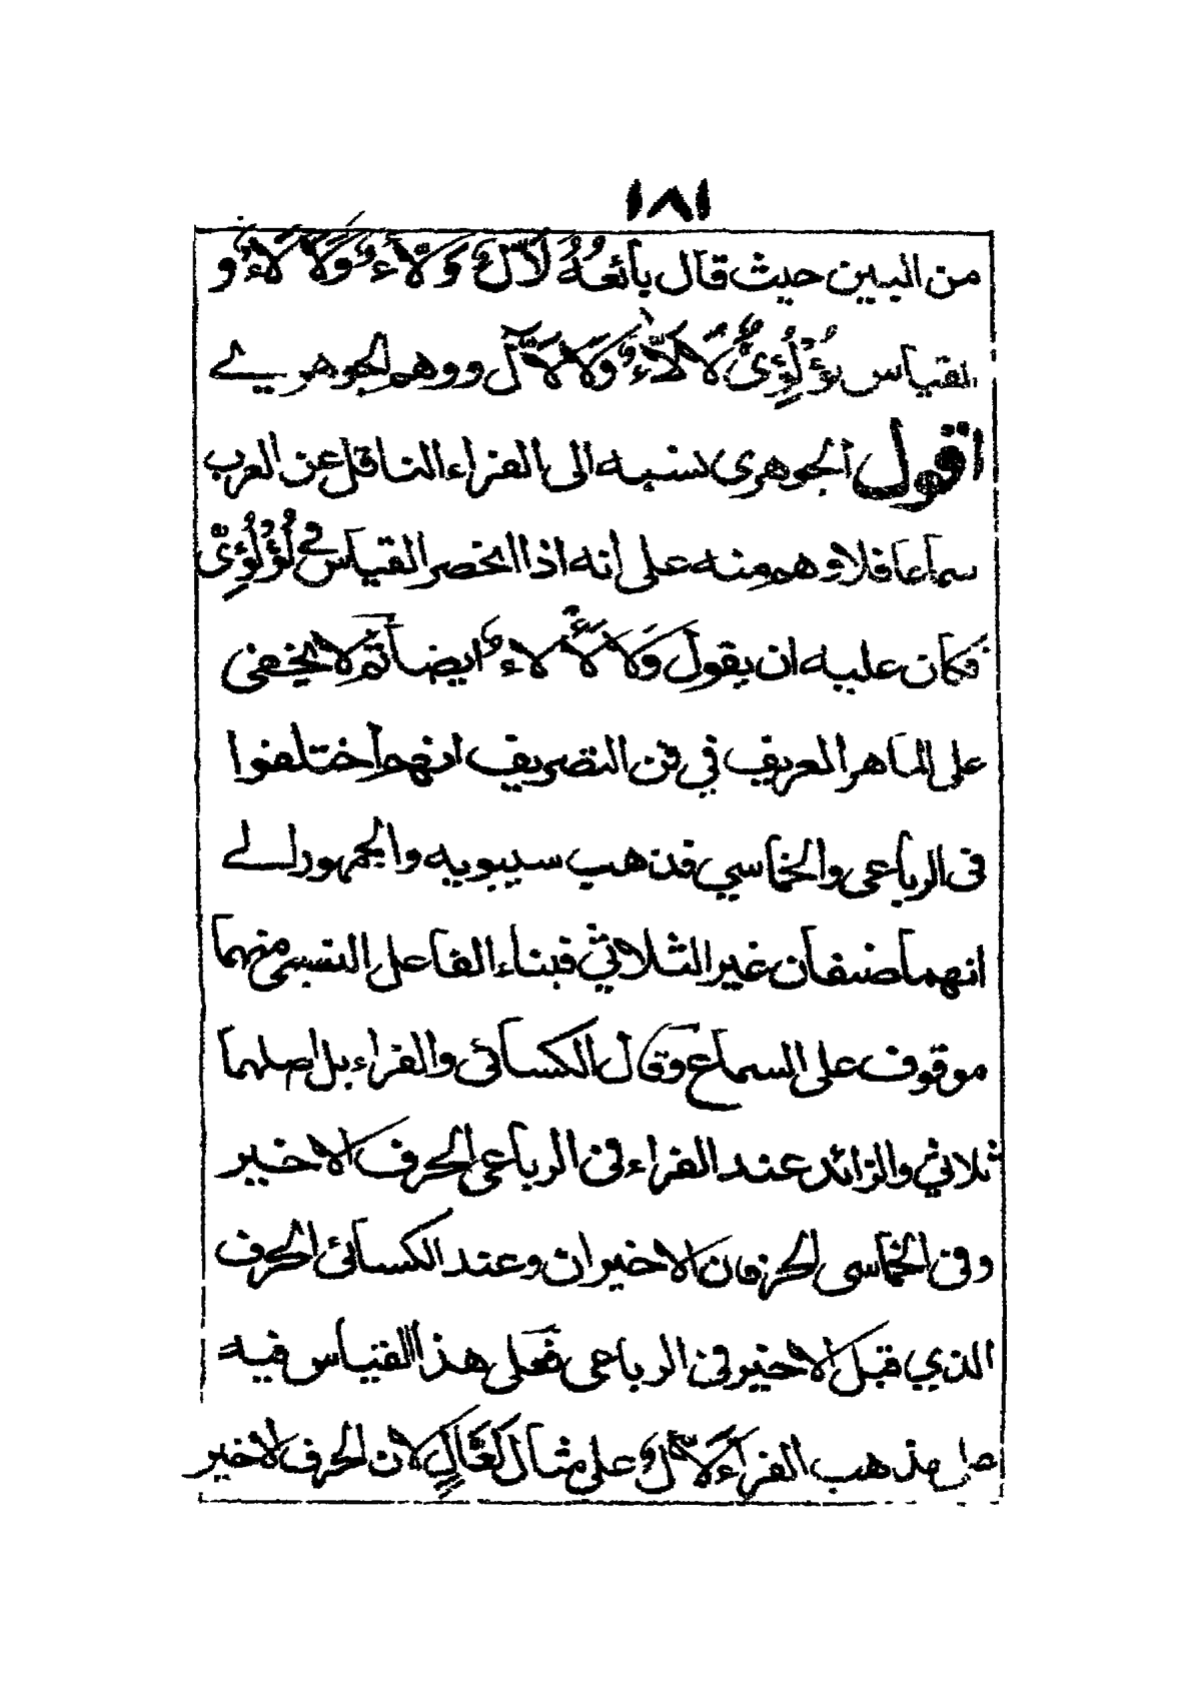 ١٨١
من البين حيث قال بائعُهُ لَأّلٌ وَلَأّءٌ وَلَأْلَاءٌ و
القياس لُؤْلُؤِىٌّ لَا لَأّءٌ وَلَا لَأّلٌ ووهم الجوهري
اقول الجوهرى نسبه الى الفراء الناقل عن العرب
سماعا فلا وهم منه على انه اذا انحصر القياس في لُؤْلُؤِىّ
فكان عليه ان يقول وَلَا لَأْلَاءٌ ايضا ثم لا يخفى
على الماهر العريف في فن التصريف انهم اختلفوا
فى الرباعى والخماسي فذهب سيبويه والجمهور الى
انهما صنفان غير الثلاثي فبناء الفاعل النسبى منهما
موقوف على السماع وقال الكسائى والفراء بل اصلهما
ثلاثي والزائد عند الفراء فى الرباعى الحرف الاخير
وفى الخماسى الحرفان الاخيران وعند الكسائى الحرف
الذي قبل الاخير فى الرباعى فعلى هذا القياس فيه
على مذهب الفراء لَأّلٌ على مثال كَفَعَّالٍ لان الحرف الاخير